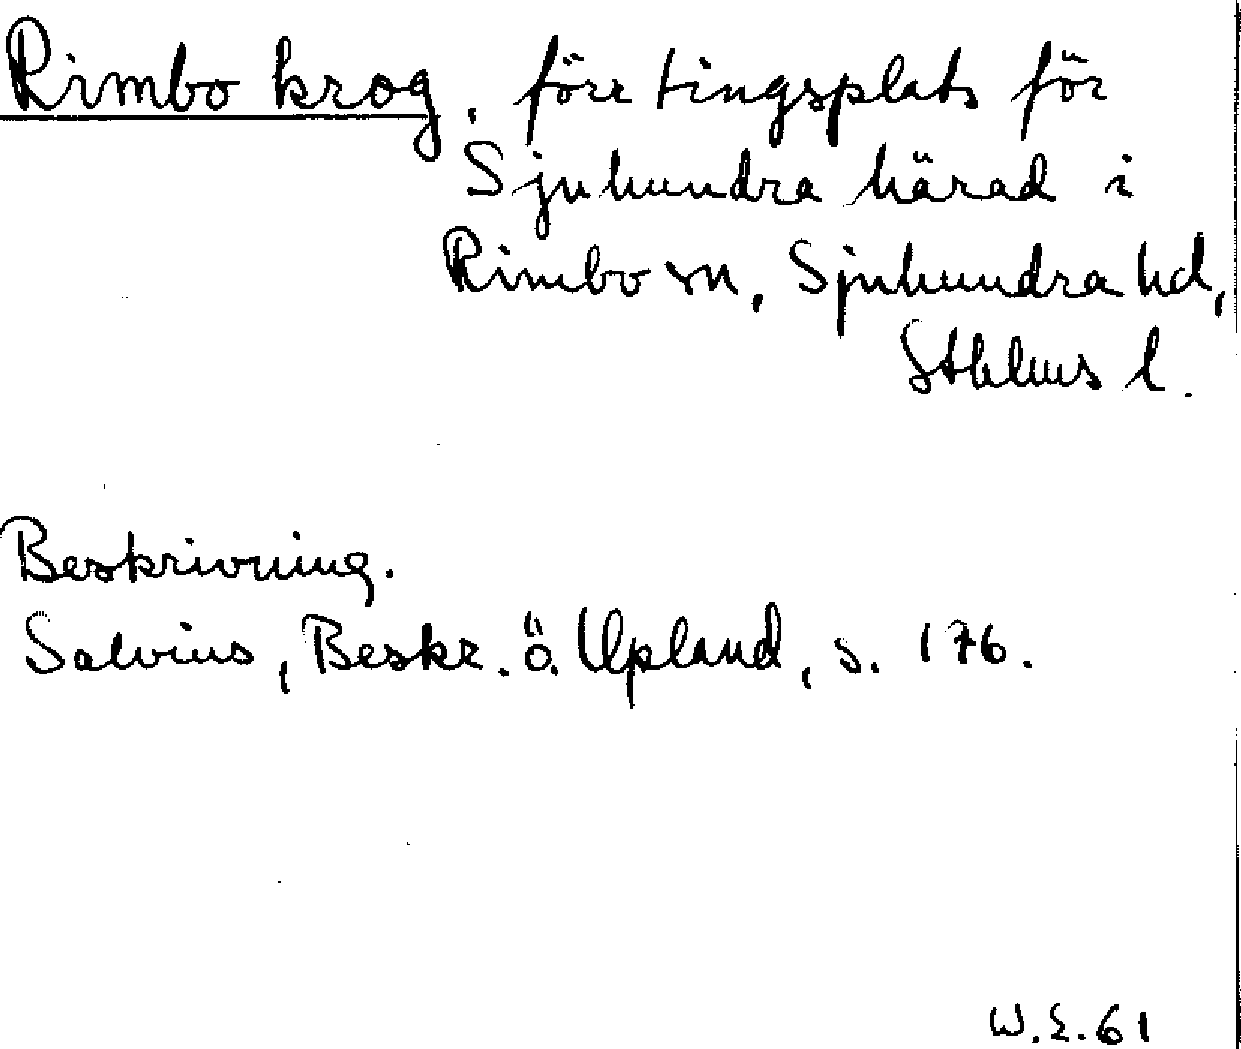 Rimbo krog, förr tingsplats för
Sjuhundra härad i
Rimbo sn, Sjuhundra hd,
Sthlms l.
Beskrivning.
Salvius, Beskr. ö. Upland, s. 176.
W.E.61